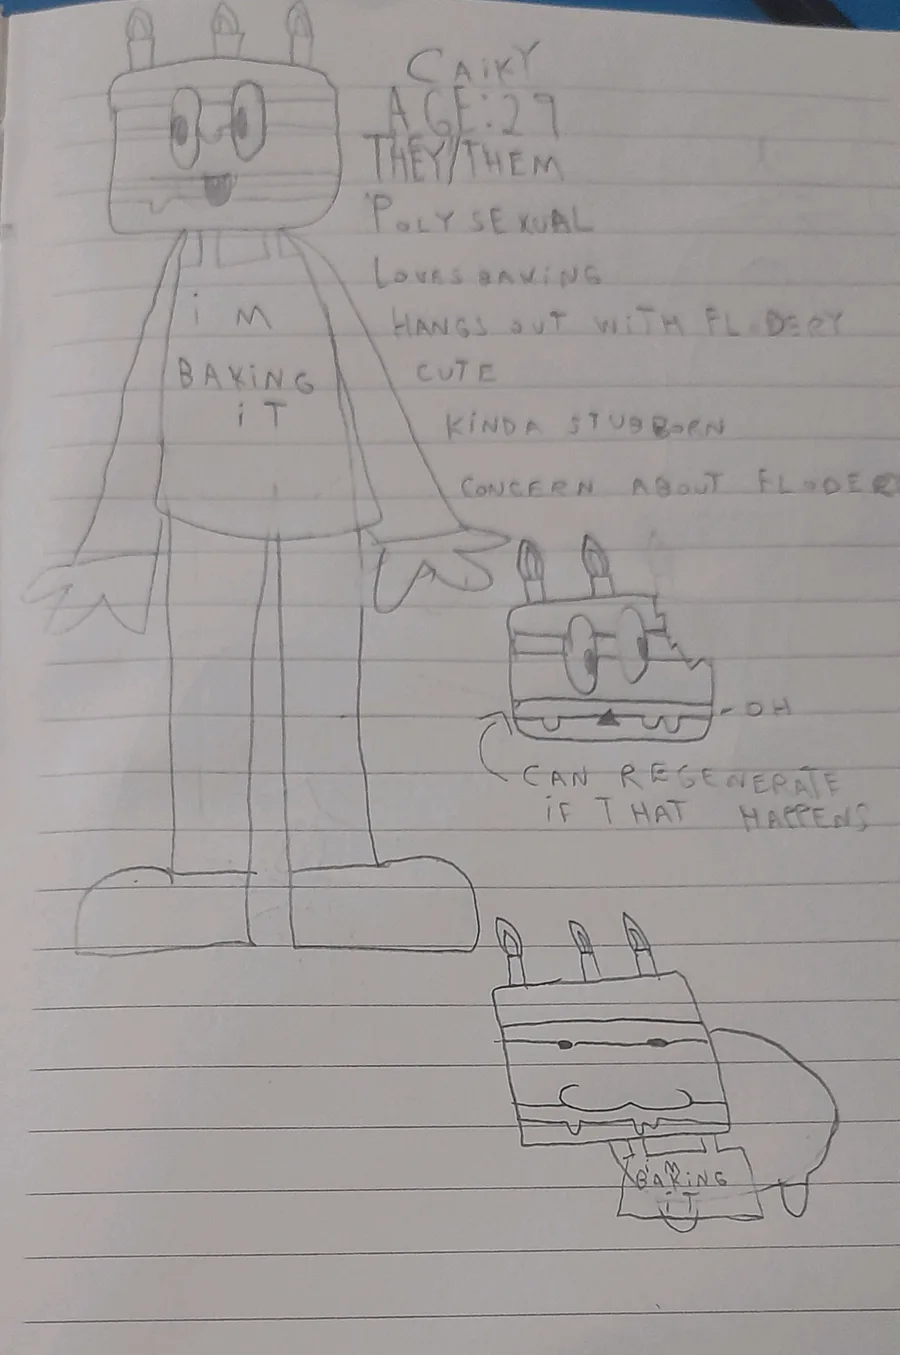 CAiKY
AGE:29
THEY/THEM
POLYSEXUAL
LOVES BAKiNG
HANGS OUT WiTH FLODERY
CUTE
KiNDA STUBBORN
CONCERN ABOUT FLODER
i M
BAKiNG
iT
OH
CAN REGENERATE
iF THAT HAPPENS
i'M
BAKiNG
iT